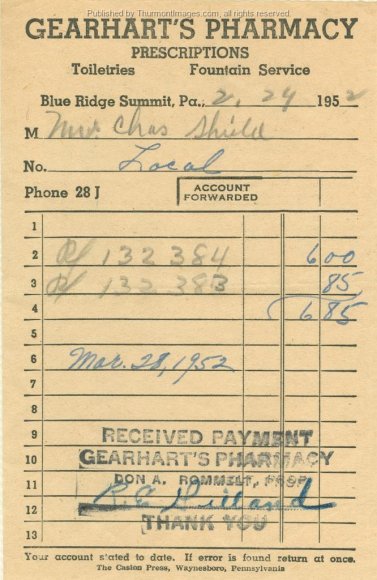 Published by ThurmontImages.com, all rights reserved.
GEARHART'S PHARMACY
PRESCRIPTIONS
Toiletries Fountain Service
Blue Ridge Summit, Pa., 2, 24 1952
M Mr. Chas Shield
No. Local
Phone 28 J ACCOUNT FORWARDED
1
2 132 384 6 00
3 132 383 85
4 6 85
5
6 Mar. 28, 1952
7
8
9 RECEIVED PAYMENT
10 GEARHART'S PHARMACY
11 DON A. ROMMELT, PROP
12
THANK YOU
13
Your account stated to date. If error is found return at once.
The Caslon Press, Waynesboro, Pennsylvania